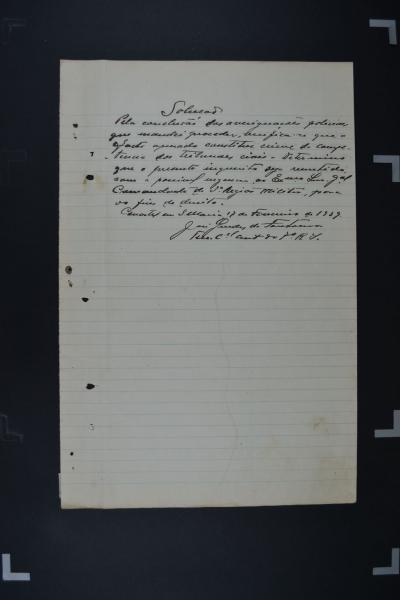 Solucção
Pela conclusão das averiguações policiaes
que mandei proceder, verifica-se que o
facto apurado constitue crime de compe-
tencia dos Tribunaes civis. Determino
que o presente inquerito seja remettido,
com a possivel urgencia ao Exmo Snr. Gal
Commandante da Região Militar, para
os fins de direito.
Quartel em S. Maria 17 de Fevereiro de 1937
de
Ten. Cel. Cmt. do 7º R. I.